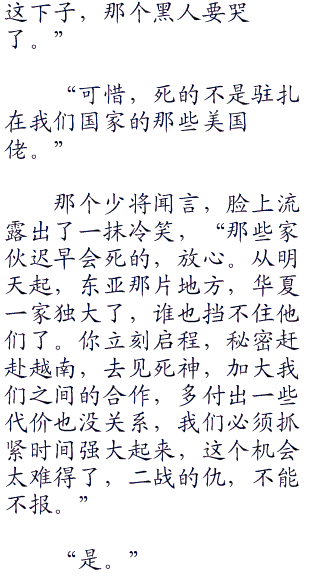 这下子，那个黑人要哭
了。”
“可惜，死的不是驻扎
在我们国家的那些美国
佬。”
那个少将闻言，脸上流
露出了一抹冷笑，“那些家
伙迟早会死的，放心。从明
天起，东亚那片地方，华夏
一家独大了，谁也挡不住他
们了。你立刻启程，秘密赶
赴越南，去见死神，加大我
们之间的合作，多付出一些
代价也没关系，我们必须抓
紧时间强大起来，这个机会
太难得了，二战的仇，不能
不报。”
“是。”